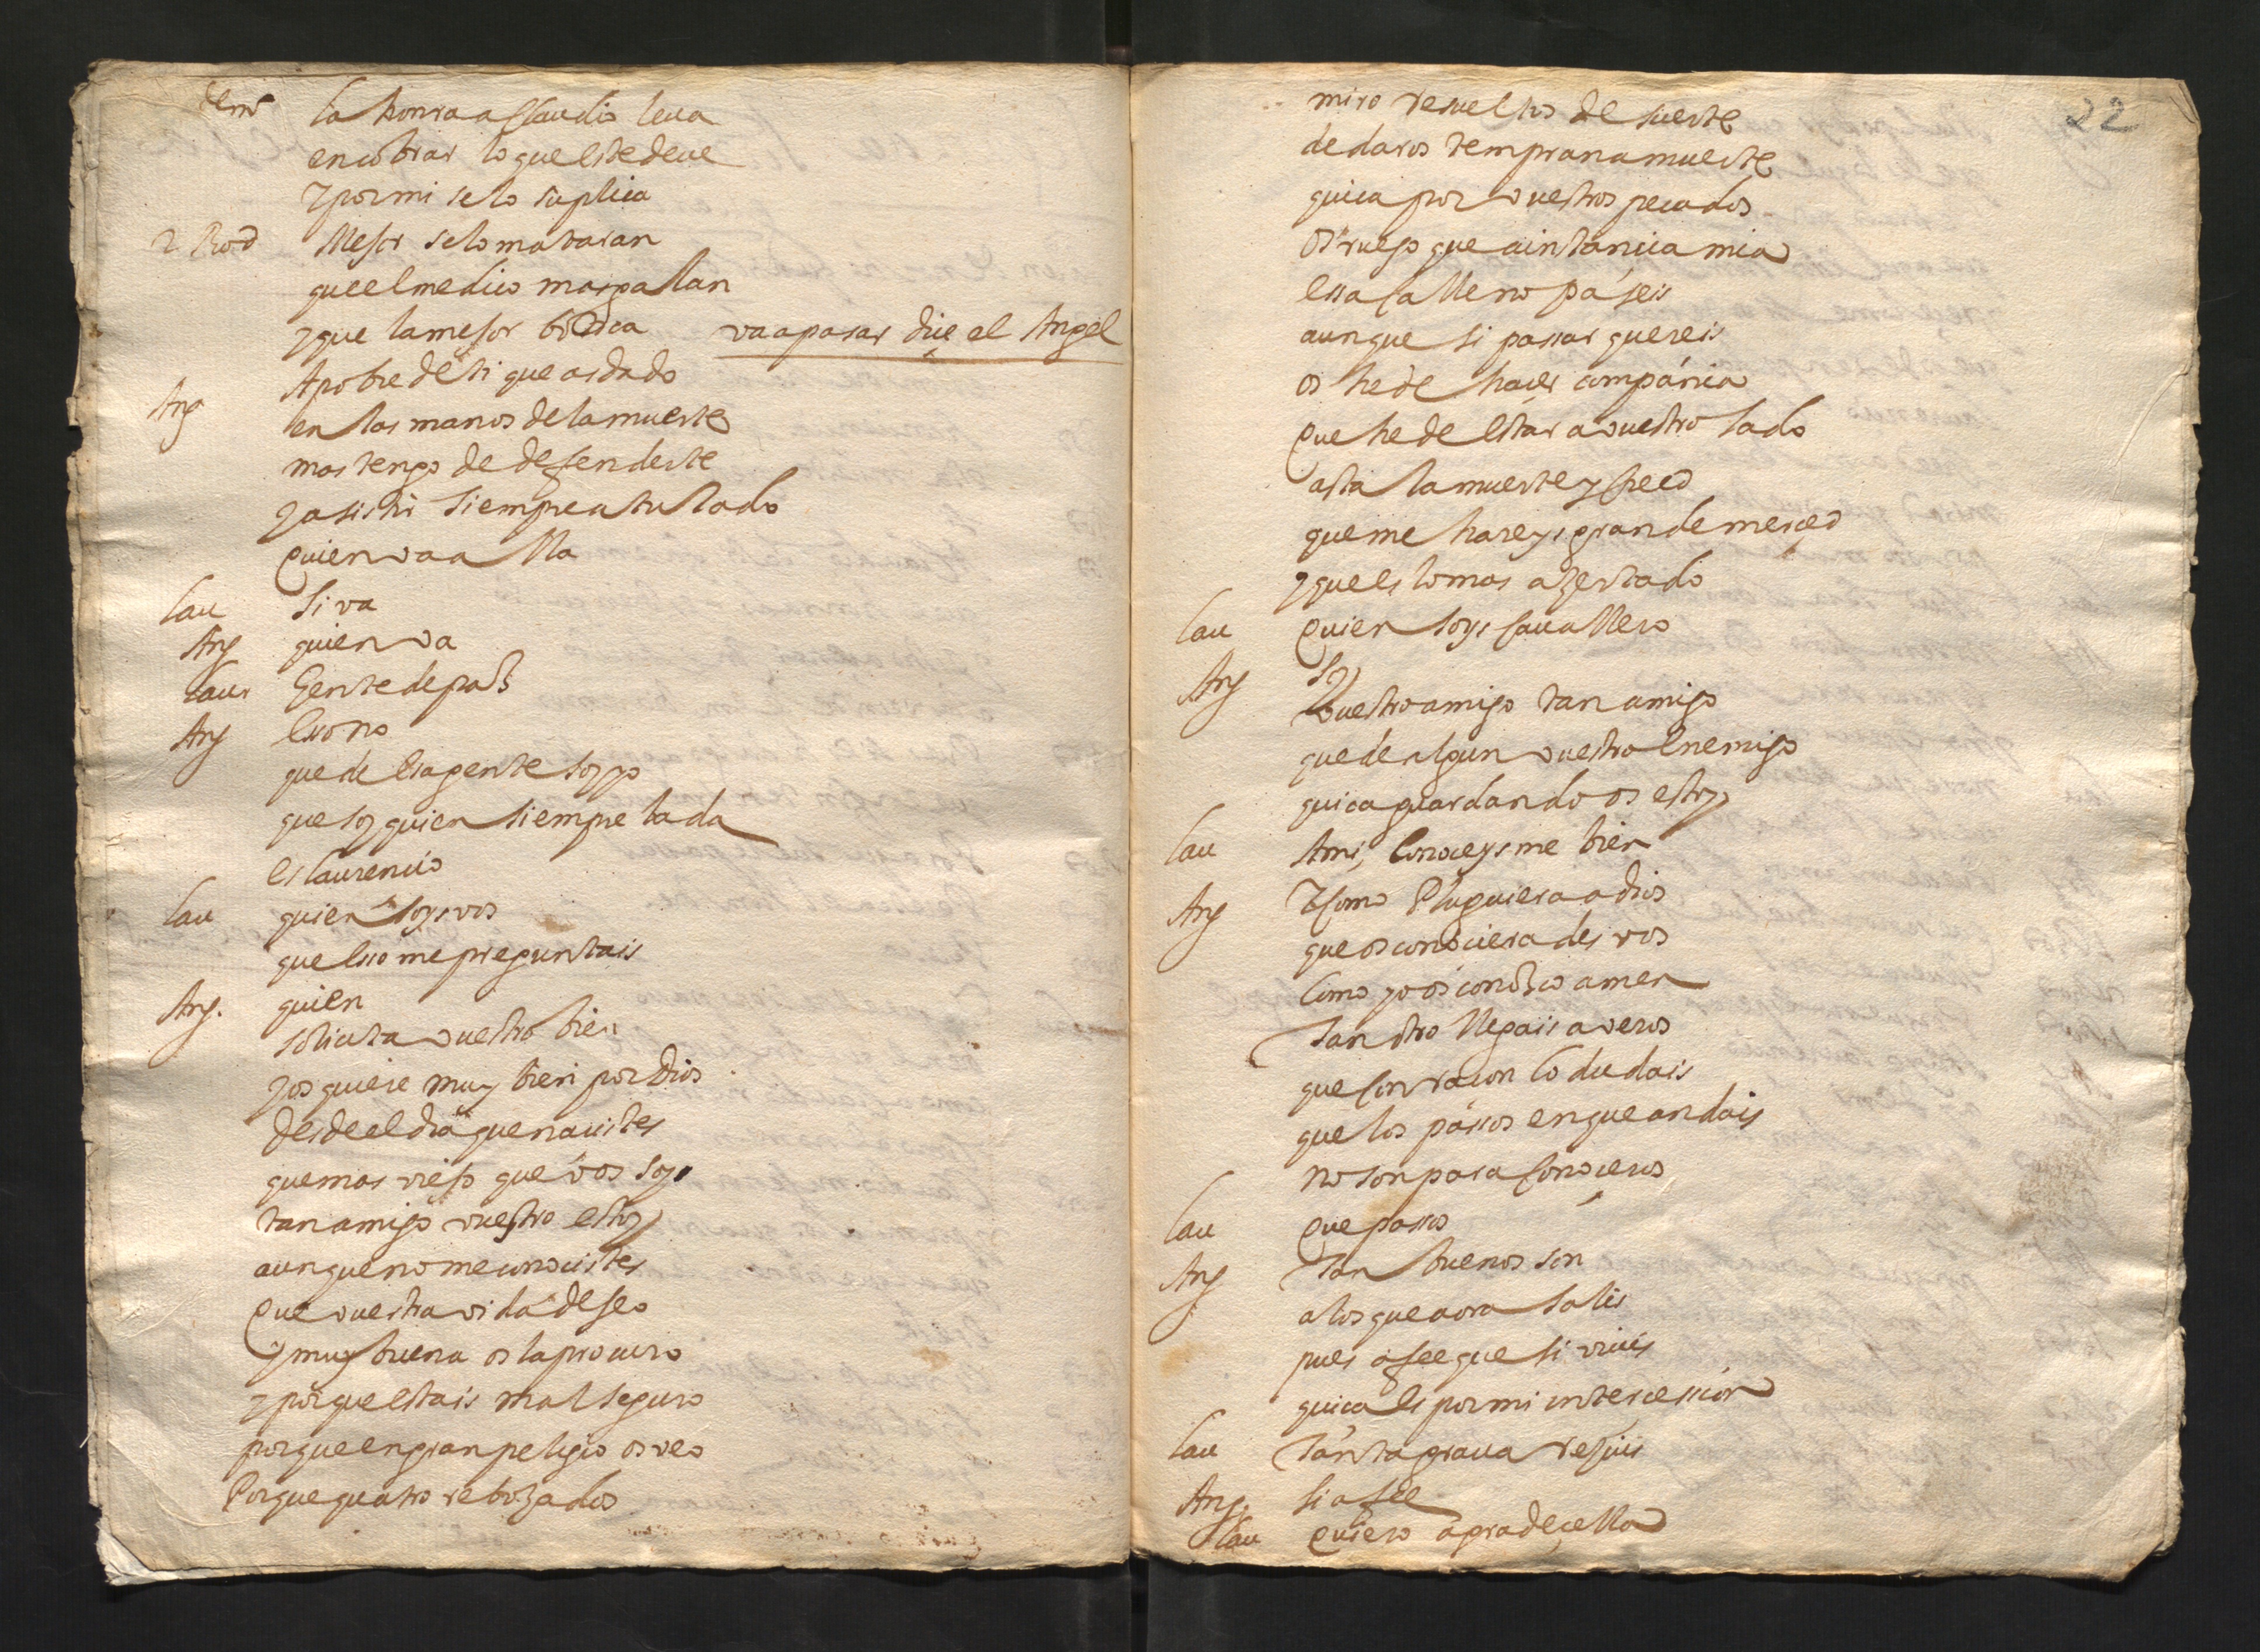 dem la honra a Claudio lleua
en cobrar lo que este deue
y por mi se lo suplica
2 Rod Mejor se lo mataran
que el medico mas galan
y que la mejor botica va a pasar diçe el Angel
Ang A pobre de ti que as dado
en las manos de la muerte
mas tengo de defenderte
y asistir siempre a tu lado
Quien va alla
lau si va
Ang quien va
laur Gente de paz
Ang Esso no
que de esa gente soy yo
que soy quien siempre la da
es laurencio
lau quien soys vos
que esso me preguntais
Ang. quien
soliçita vuestro bien
y os quiere muy bien por Dios
desde el dia que nacistes
que mas viejo que vos soy
tan amigo vuestro estoy
aunque no me conocistes
Que vuestra vida deseo
y muy buena os la procuro
y porque estais mal seguro
porque en gran peligro os veo
Porque quatro rebozados
22
miro resueltos de suerte
de daros temprana muerte
quica por vuestros pecados
Os ruego que a instancia mia
essa calle no paseis
aunque si passar quereis
os he de haçer compania
Que he de estar a vuestro lado
asta la muerte y creed
que me hareys grande merçed
y que es lo mas azertado
lau Quien soys cauallero
Ang soy
Vuestro amigo tan amigo
que de algun vuestro enemigo
quica guardando os estoy
lau A mi, conoceysme bien
Ang Y como Pluguiera a dios
que os conocierades vos
como yo os conozco amen
Tan otro llegais a veros
que con racon lo dudais
que los passos en que andais
no son para conoçeros
lau Que passos
Ang Tan buenos son
a los que aora salis
pues a fee que si viuis
quica es por mi intercession
lau Tanta gracia tenéis
Ang. si a fee
lau Quiero agradeçella